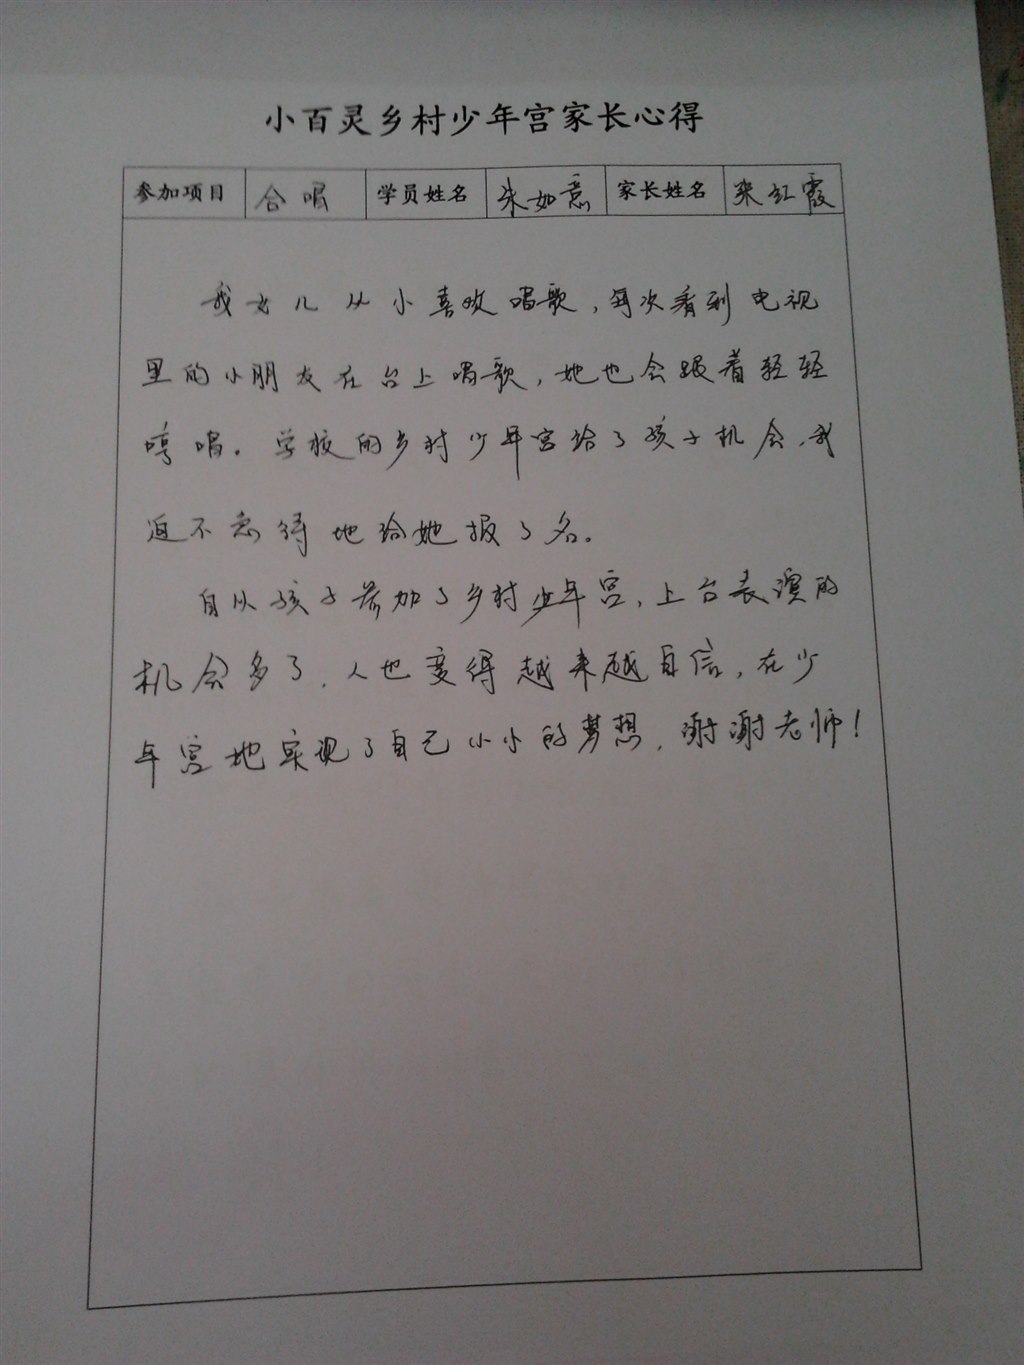 小百灵乡村少年宫家长心得
参加项目 合唱 学员姓名 朱如意 家长姓名 来红霞
我女儿从小喜欢唱歌，每次看到电视
里的小朋友在台上唱歌，她也会跟着轻轻
哼唱。学校的乡村少年宫给了孩子机会，我
迫不急待地给她报了名。
自从孩子参加了乡村少年宫，上台表演的
机会多了，人也变得越来越自信，在少
年宫她实现了自己小小的梦想，谢谢老师！